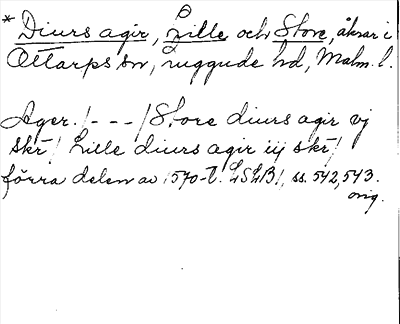 * Diurs agir, Lille och Store, åkrar i
Ottarps sn, Luggude hd, Malm. l.
Ager. /- - - / Store diurs agir vj
skr / Lille diurs agir iij skr /
förra delen av 1570-t. LSLB 1, ss. 542, 543.
orig.